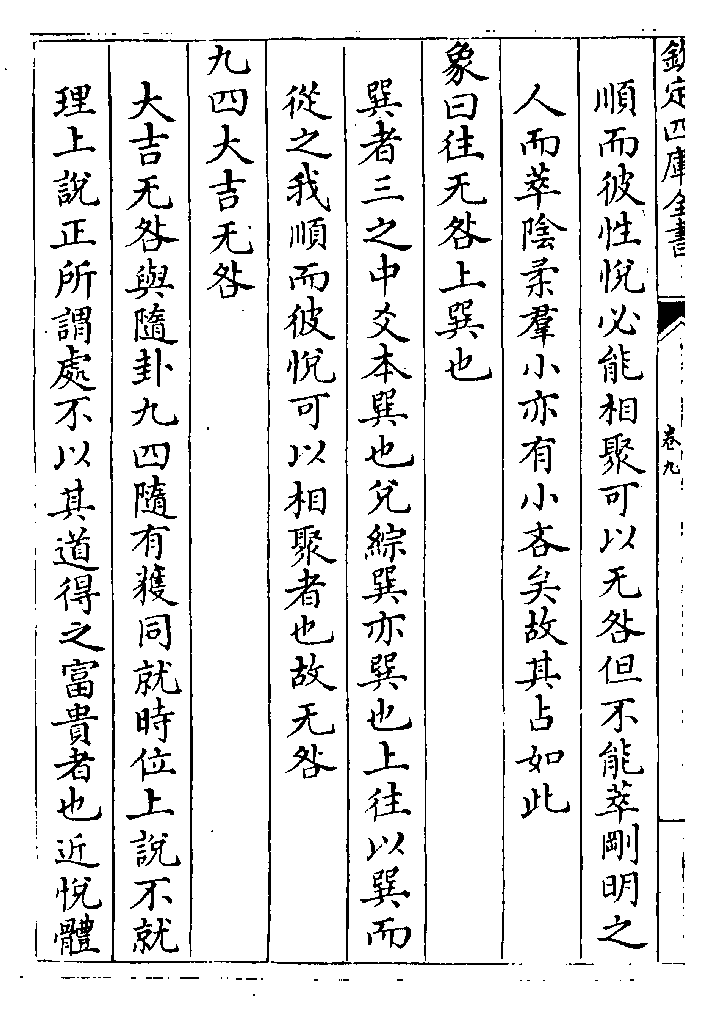 欽定四庫全書
卷九
順而彼性悅必能相聚可以无咎但不能萃剛明之
人而萃陰柔羣小亦有小吝矣故其占如此
象曰往无咎上巽也
巽者三之中爻本巽也兌綜巽亦巽也上往以巽而
從之我順而彼悅可以相聚者也故无咎
九四大吉无咎
大吉无咎與隨卦九四隨有獲同就時位上說不就
理上說正所謂處不以其道得之富貴者也近悅體